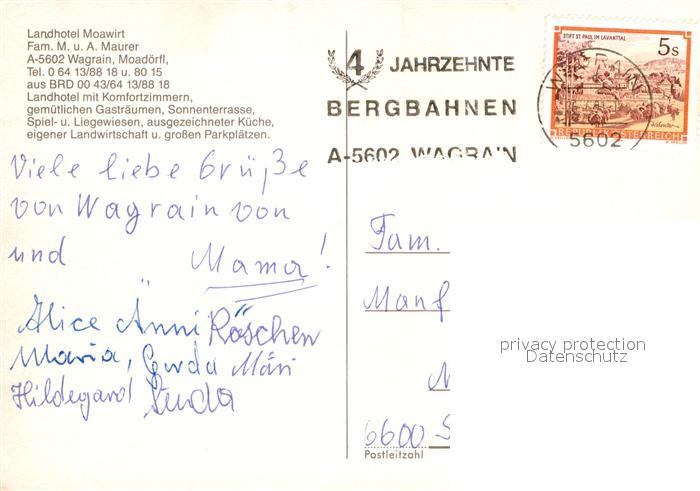 Landhotel Moawirt
Fam. M. u. A. Maurer
A-5602 Wagrain, Moadörfl,
Tel. 0 64 13/88 18 u. 80 15
aus BRD 00 43/64 13/88 18
Landhotel mit Komfortzimmern,
gemütlichen Gasträumen, Sonnenterrasse,
Spiel- u. Liegewiesen, ausgezeichneter Küche,
eigener Landwirtschaft u. großen Parkplätzen.
Viele liebe Grüße
von Wagrain von
und Mama!
Alice Änni Röschen
Maria, Gerda Märi
Hildegard
4 JAHRZEHNTE
BERGBAHNEN
A-5602 WAGRAIN
STIFT ST. PAUL IM LAVANTTAL
5 s
REPUBLIK ÖSTERREICH
WAGRAIN
5602
Fam.
Manf
6600 S
Postleitzahl
privacy protection
Datenschutz